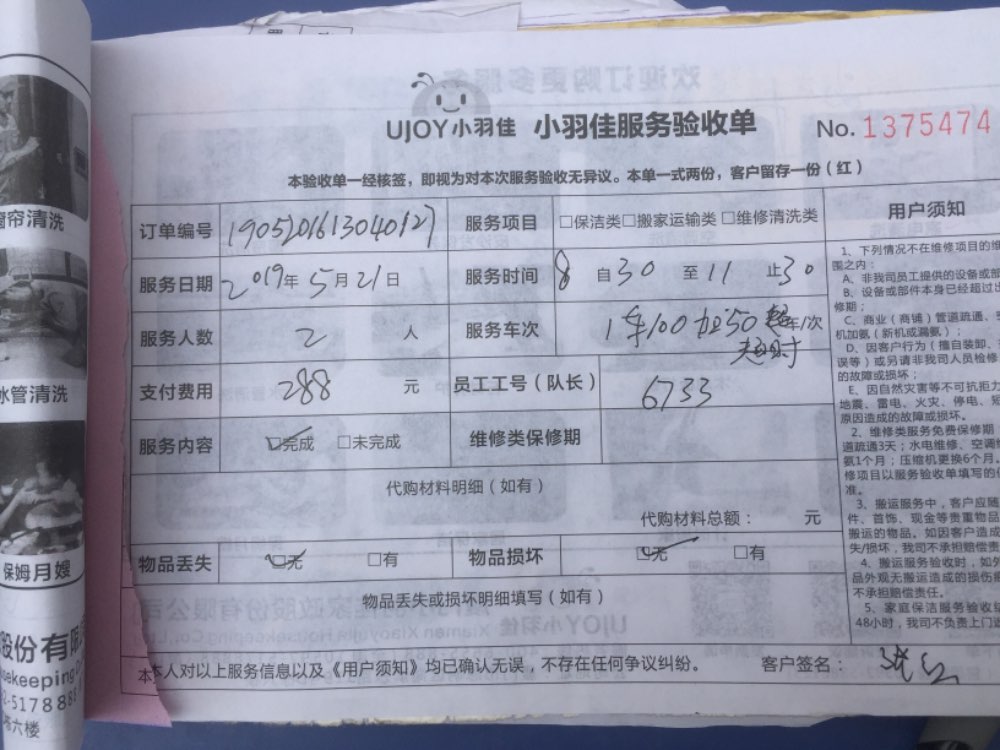 UJOY小羽佳 小羽佳服务验收单 No. 1375474
本验收单一经核签，即视为对本次服务验收无异议。本单一式两份，客户留存一份（红）
订单编号 1905201613040127 服务项目 □保洁类□搬家运输类□维修清洗类
服务日期 2019年5月21日 服务时间 8 自30 至11 止30
服务人数 2 人 服务车次 1车100加50 车/次
超时
支付费用 288 元 员工工号（队长） 6733
服务内容 □完成 □未完成 维修类保修期
代购材料明细（如有）
代购材料总额： 元
物品丢失 □无 □有 物品损坏 □无 □有
物品丢失或损坏明细填写（如有）
本人对以上服务信息以及《用户须知》均已确认无误，不存在任何争议纠纷。 客户签名：
用户须知
1、下列情况不在维修项目的维
围之内：
A、非我司员工提供的设备或部
B、设备或部件本身已经超过出
修期；
C、商业（商铺）管道疏通、空
机加氨（新机或漏氨）；
D、因客户行为（擅自装卸、
误等）或另请非我司人员检修
的故障或损坏；
E、因自然灾害等不可抗拒力
地震、雷电、火灾、停电、短
原因造成的故障或损坏。
2、维修类服务免费保修期
道疏通3天；水电维修、空调
氨1个月；压缩机更换6个月。
修项目以服务验收单填写的
准。
3、搬运服务中，客户应随
件、首饰、现金等贵重物品
搬运的物品。如因客户造成
失/损坏，我司不承担赔偿责
4、搬运服务验收时，如外
品外观无搬运造成的损伤
不承担赔偿责任。
5、家庭保洁服务验收
48小时，我司不负责上门
窗帘清洗
水管清洗
保姆月嫂
股份有限
sekeeping
2-517888
塔六楼